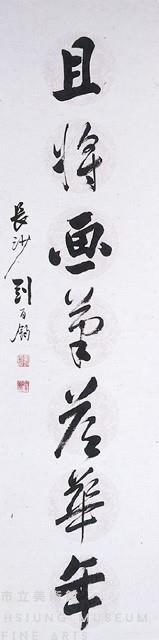 且將画筆答華年
長沙劉百鈞
市立美
HSIUNG MUSEUM
FINE ARTS